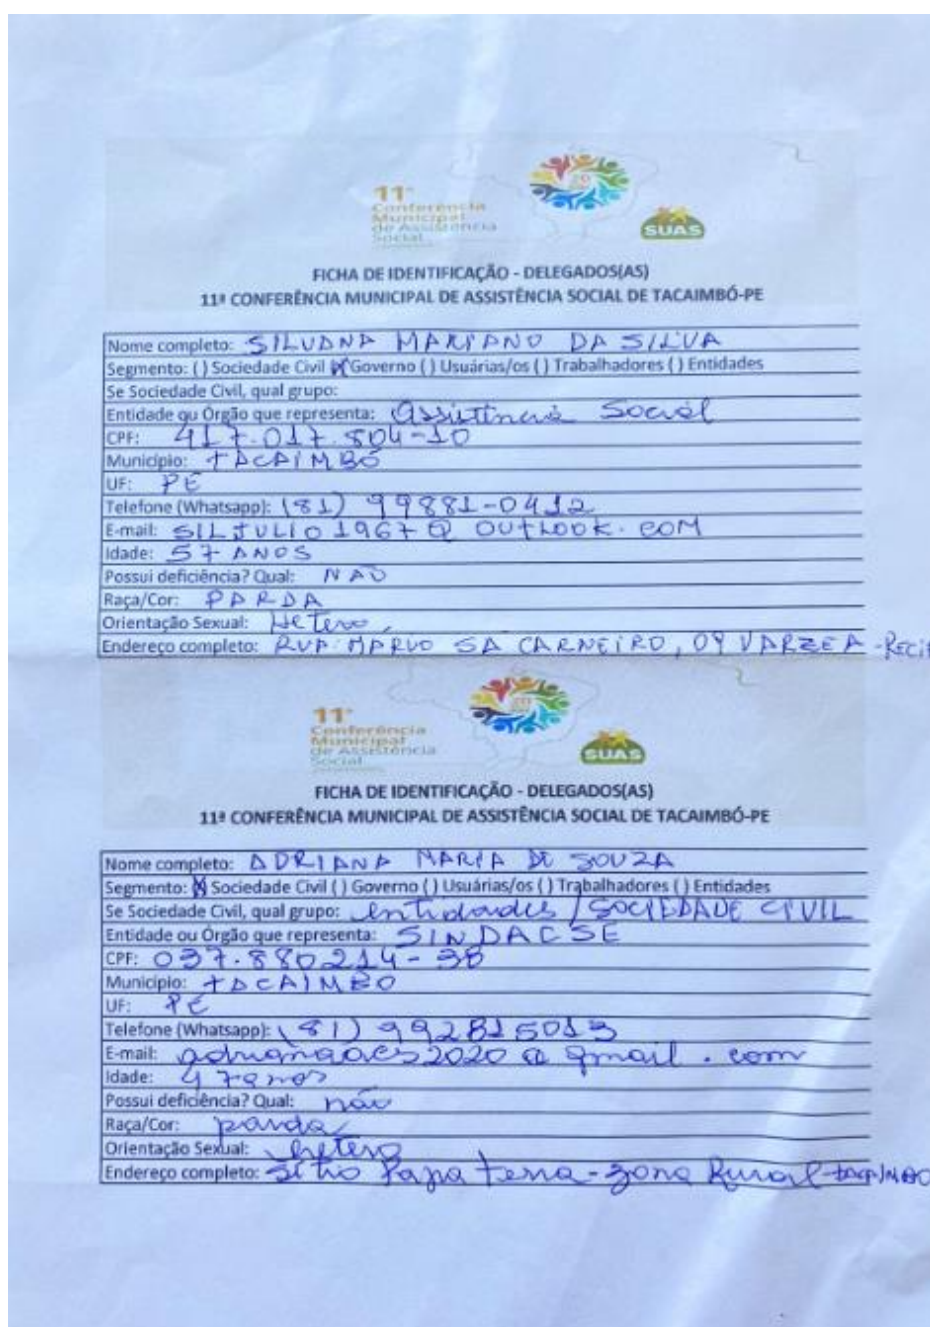 11ª
Conferência
Municipal
de Assistência
Social
20
SUAS
FICHA DE IDENTIFICAÇÃO - DELEGADOS(AS)
11ª CONFERÊNCIA MUNICIPAL DE ASSISTÊNCIA SOCIAL DE TACAIMBÓ-PE
Nome completo: SILVANA MARIANO DA SILVA
Segmento: ( ) Sociedade Civil (X) Governo ( ) Usuárias/os ( ) Trabalhadores ( ) Entidades
Se Sociedade Civil, qual grupo:
Entidade ou Órgão que representa: Assistência Social
CPF: 417.017.504-10
Município: TACAIMBÓ
UF: PE
Telefone (Whatsapp): (81) 99881-0412
E-mail: SILJULIO1967@OUTLOOK.COM
Idade: 57 ANOS
Possui deficiência? Qual: NÃO
Raça/Cor: PARDA
Orientação Sexual: Hetero
Endereço completo: RUA MARIO SA CARNEIRO, 09 VARZEA -RECIF
11ª
Conferência
Municipal
de Assistência
Social
20
SUAS
FICHA DE IDENTIFICAÇÃO - DELEGADOS(AS)
11ª CONFERÊNCIA MUNICIPAL DE ASSISTÊNCIA SOCIAL DE TACAIMBÓ-PE
Nome completo: ADRIANA MARIA DE SOUZA
Segmento: (X) Sociedade Civil ( ) Governo ( ) Usuárias/os ( ) Trabalhadores ( ) Entidades
Se Sociedade Civil, qual grupo: entidades / SOCIEDADE CIVIL
Entidade ou Órgão que representa: SINDACSE
CPF: 037.880214-38
Município: TACAIMBO
UF: PE
Telefone (Whatsapp): (81) 992815013
E-mail: adrianaacs2020@gmail.com
Idade: 47 anos
Possui deficiência? Qual: não
Raça/Cor: parda
Orientação Sexual: hetero
Endereço completo: Sitio Papa terra - Zona Rural - tacaimbo